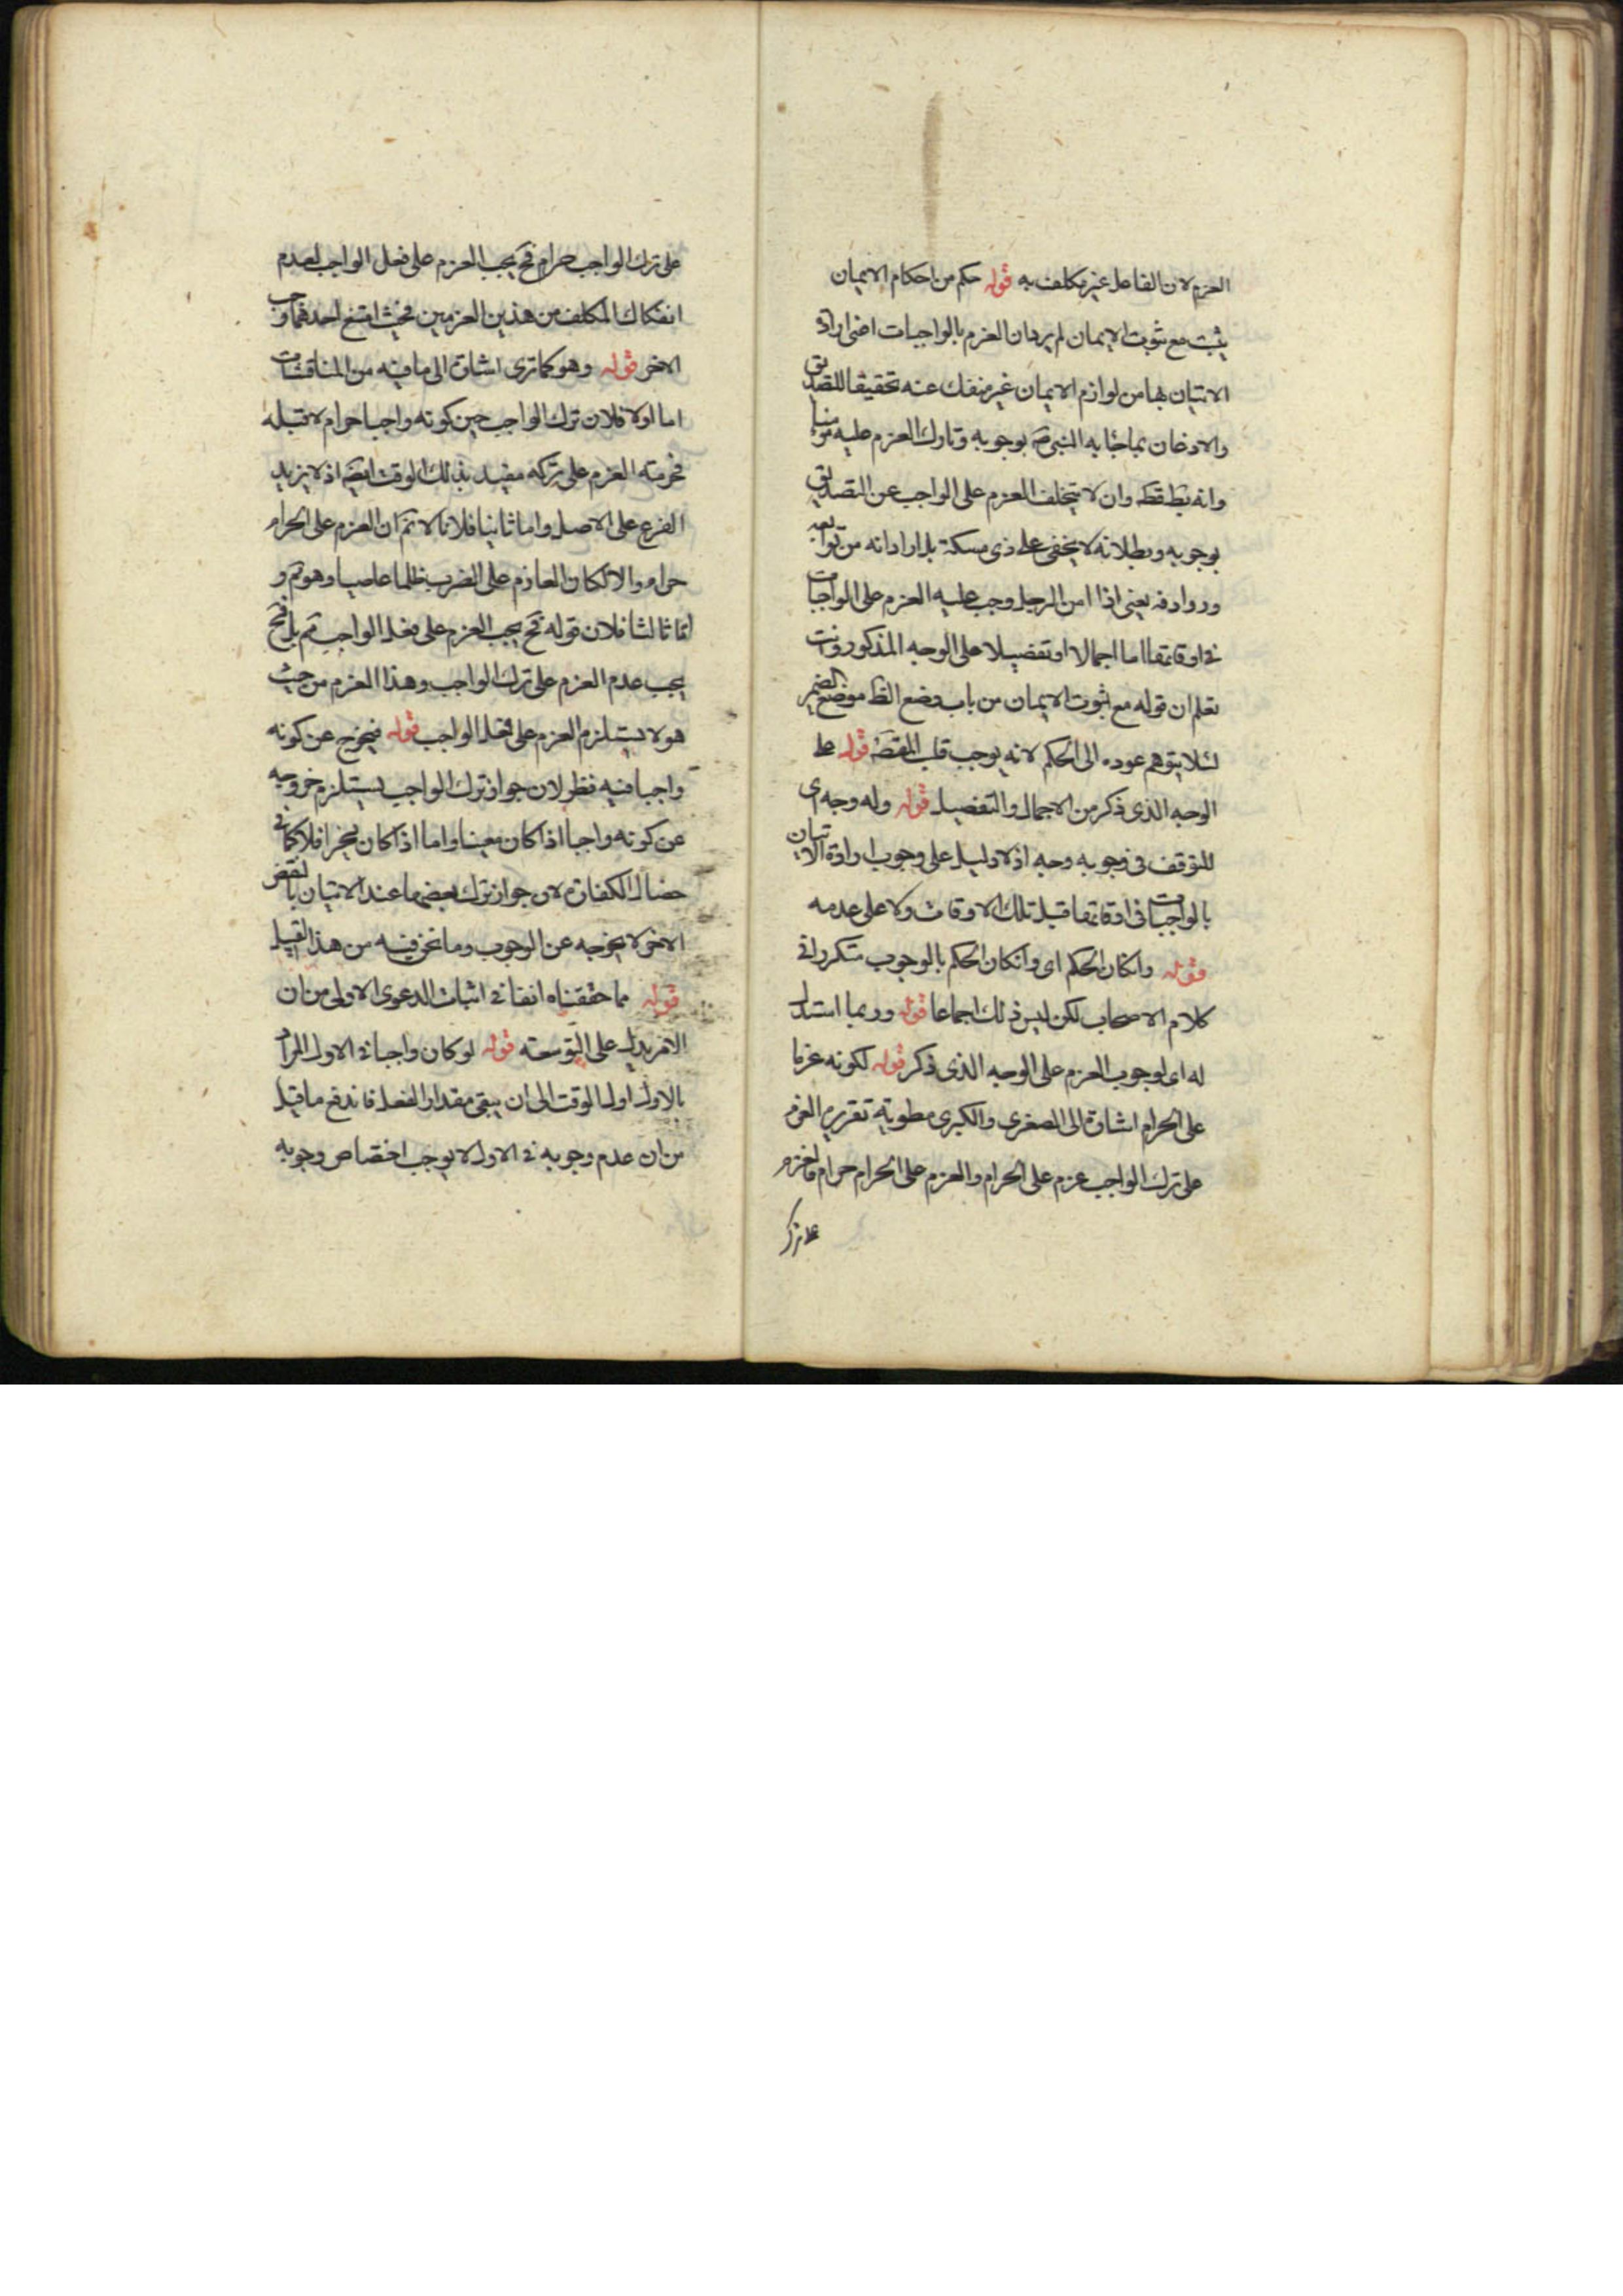 العزم لان الغافل غير مكلف به قوله حكم من احكام الايمان
يثبت مع ثبوت الايمان لم يرد ان العزم بالواجبات اعنى ارادة
الاتيان بها من لوازم الايمان غير منفك عنه تحقيقا للتصديق
والاذعان بما جاء به النبى ص بوجوبه وتارك العزم عليه مؤمنا
وانه بط قطـ وان لا يتخلف العزم على الواجب عن التصديق
بوجوبه وبطلانه لا يخفى على ذى مسكة بل اراد انه من توابعه
وروادفه يعنى اذا امن الرجل وجب عليه العزم على الواجبات
فى اوقاتها اما اجمالا او تفصيلا على الوجه المذكور وانت
تعلم ان قوله مع ثبوت الايمان من باب وضع الظ موضع الضمير
لئلا يتوهم عوده الى الحكم لانه يوجب قلب المقصـ قوله على
الوجه الذى ذكر من الاجمال والتفصيل قوله وله وجه اى
للتوقف فى وجوبه وجه اذ لا دليل على وجوب ارادة الاتيان
بالواجبات فى اوقاتها قبل تلك الاوقات ولا على عدمه
قوله وان كان الحكم اى وان كان الحكم بالوجوب متكررا فى
كلام الاصحاب لكن ليس ذلك اجماعا قوله وربما استدل
له اى لوجوب العزم على الوجه الذى ذكر قوله لكونه عزما
على الحرام اشارة الى الصغرى والكبرى مطوية تقريره العزم
على ترك الواجب عزم على الحرام والعزم على الحرام حرام فالعزم
على ترك
على ترك الواجب حرام فح يجب العزم على فعل الواجب لعدم
انفكاك المكلف من هذين العزمين فحيث امتنع احدهما وجب
الاخر قوله وهو كما ترى اشارة الى ما فيه من المناقشات
اما اولا فلان ترك الواجب حين كونه واجبا حرام لا قبله
فحرمته العزم على تركه مقيد بذلك الوقت ايضـ اذ لا يزيد
الفرع على الاصل واما ثانيا فلانا لا نم ان العزم على الحرام
حرام والا لكان العازم على الضرب ظلما عاصيا وهو مم و
اما ثالثا فلان قوله فح يجب العزم على فعل الواجب مم بل فح
يجب عدم العزم على ترك الواجب وهذا العزم من حيث
هو لا يستلزم العزم على فعل الواجب قوله فيخرج عن كونه
واجبا فيه نظر لان جواز ترك الواجب يستلزم خروجه
عن كونه واجبا اذا كان معينا واما اذا كان مخيرا فلا كما فى
خصال الكفارة لان جواز ترك بعضها عند الاتيان بالبعض
الاخر لا يخرجه عن الوجوب وما نحن فيه من هذا القبيل
قوله مما حققناه انفا فى اثبات الدعوى الاولى من ان
الامر يدل على التوسعة قوله لو كان واجبا فى الاول المراد
بالاول اول الوقت الى ان يبقى مقدار الفعل فاندفع ما قيل
من ان عدم وجوبه فى الاول لا يوجب اختصاص وجوبه